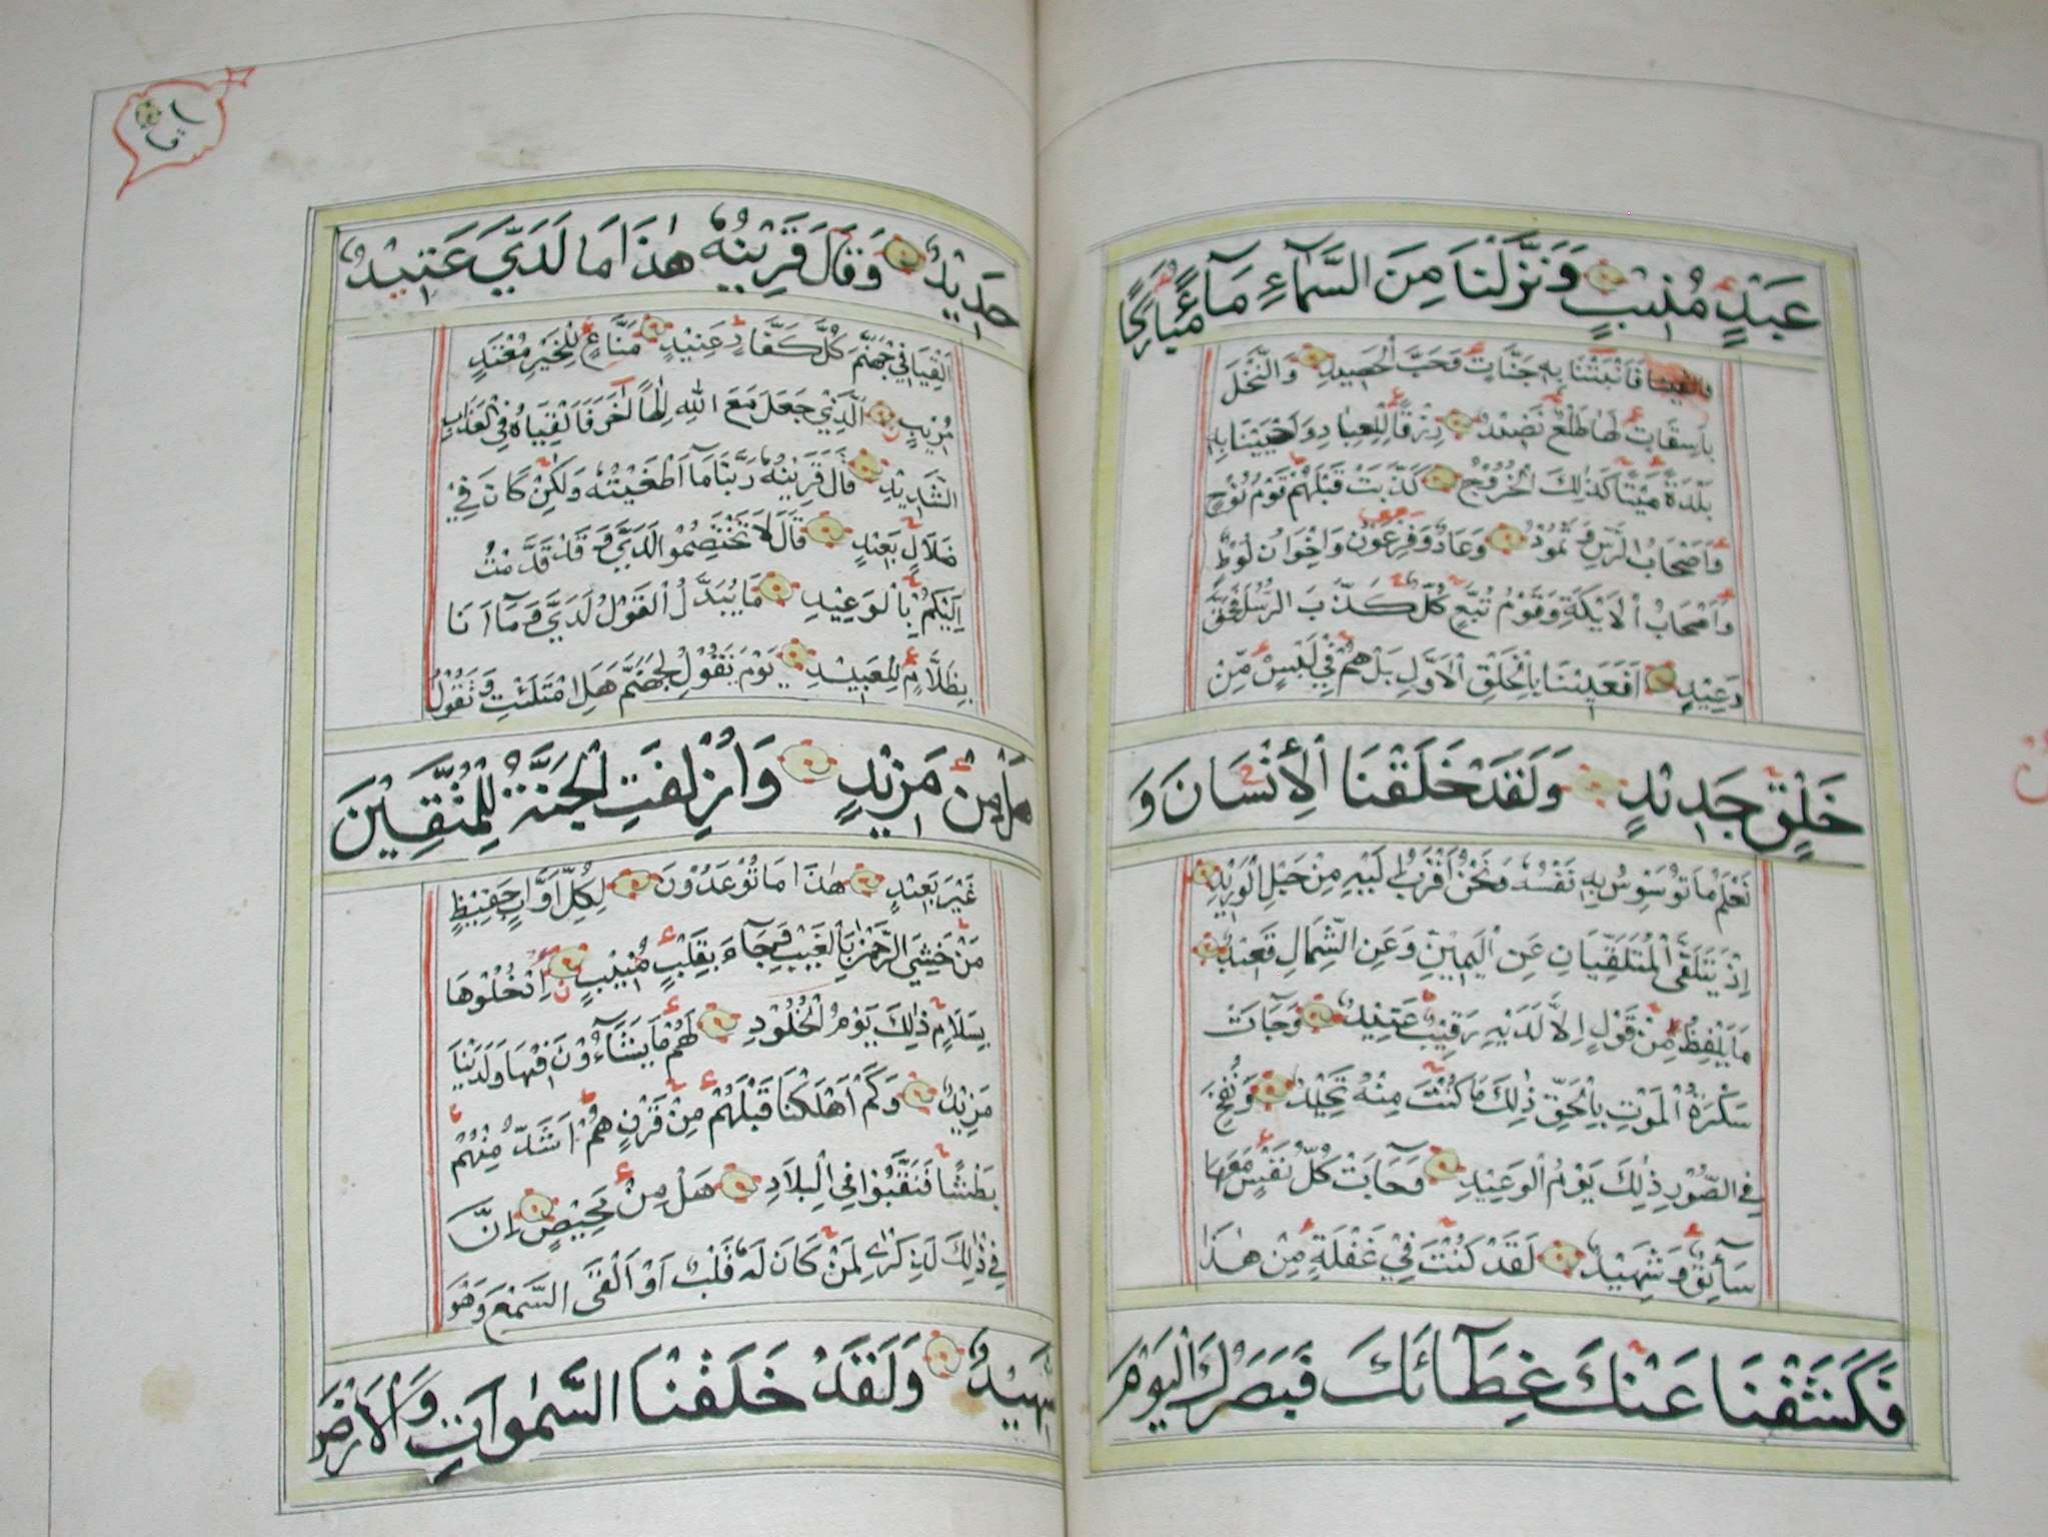 عَبْدٍ مُنِيْبٍ وَنَزَّلْنَا مِنَ السَّمَآءِ مَآءً مُبَارَكًا
فَاَنْبَتْنَا بِهٖ جَنَّاتٍ وَحَبَّ الْحَصِيْدِ وَالنَّخْلَ
بَاسِقَاتٍ لَهَا طَلْعٌ نَضِيْدٌ رِزْقًا لِلْعِبَادِ وَاَحْيَيْنَا بِهٖ
بَلْدَةً مَيْتًا كَذٰلِكَ الْخُرُوْجُ كَذَّبَتْ قَبْلَهُمْ قَوْمُ نُوْحٍ
وَاَصْحَابُ الرَّسِّ وَثَمُوْدُ وَعَادٌ وَفِرْعَوْنُ وَاِخْوَانُ لُوْطٍ
وَاَصْحَابُ الْاَيْكَةِ وَقَوْمُ تُبَّعٍ كُلٌّ كَذَّبَ الرُّسُلَ فَحَقَّ
وَعِيْدِ اَفَعَيِيْنَا بِالْخَلْقِ الْاَوَّلِ بَلْ هُمْ فِيْ لَبْسٍ مِّنْ
خَلْقٍ جَدِيْدٍ وَلَقَدْ خَلَقْنَا الْاِنْسَانَ وَ
نَعْلَمُ مَا تُوَسْوِسُ بِهٖ نَفْسُهٗ وَنَحْنُ اَقْرَبُ اِلَيْهِ مِنْ حَبْلِ الْوَرِيْدِ
اِذْ يَتَلَقَّى الْمُتَلَقِّيَانِ عَنِ الْيَمِيْنِ وَعَنِ الشِّمَالِ قَعِيْدٌ
مَا يَلْفِظُ مِنْ قَوْلٍ اِلَّا لَدَيْهِ رَقِيْبٌ عَتِيْدٌ وَجَآءَتْ
سَكْرَةُ الْمَوْتِ بِالْحَقِّ ذٰلِكَ مَا كُنْتَ مِنْهُ تَحِيْدُ وَنُفِخَ
فِي الصُّوْرِ ذٰلِكَ يَوْمُ الْوَعِيْدِ وَجَآءَتْ كُلُّ نَفْسٍ مَعَهَا
سَآئِقٌ وَشَهِيْدٌ لَقَدْ كُنْتَ فِيْ غَفْلَةٍ مِنْ هٰذَا
فَكَشَفْنَا عَنْكَ غِطَآئَكَ فَبَصَرُكَ الْيَوْمَ
حَدِيْدٌ وَقَالَ قَرِيْنُهٗ هٰذَا مَا لَدَيَّ عَتِيْدٌ
اَلْقِيَا فِيْ جَهَنَّمَ كُلَّ كَفَّارٍ عَنِيْدٍ مَنَّاعٍ لِلْخَيْرِ مُعْتَدٍ
مُرِيْبٍ الَّذِيْ جَعَلَ مَعَ اللّٰهِ اِلٰهًا اٰخَرَ فَاَلْقِيَاهُ فِي الْعَذَابِ
الشَّدِيْدِ قَالَ قَرِيْنُهٗ رَبَّنَا مَا اَطْغَيْتُهٗ وَلٰكِنْ كَانَ فِيْ
ضَلَالٍ بَعِيْدٍ قَالَ لَا تَخْتَصِمُوا لَدَيَّ وَقَدْ قَدَّمْتُ
اِلَيْكُمْ بِالْوَعِيْدِ مَا يُبَدَّلُ الْقَوْلُ لَدَيَّ وَمَآ اَنَا
بِظَلَّامٍ لِلْعَبِيْدِ يَوْمَ نَقُوْلُ لِجَهَنَّمَ هَلِ امْتَلَئْتِ وَتَقُوْلُ
هَلْ مِنْ مَزِيْدٍ وَاُزْلِفَتِ الْجَنَّةُ لِلْمُتَّقِيْنَ
غَيْرَ بَعِيْدٍ هٰذَا مَا تُوْعَدُوْنَ لِكُلِّ اَوَّابٍ حَفِيْظٍ
مَنْ خَشِيَ الرَّحْمٰنَ بِالْغَيْبِ وَجَآءَ بِقَلْبٍ مُنِيْبٍ اِدْخُلُوْهَا
بِسَلَامٍ ذٰلِكَ يَوْمُ الْخُلُوْدِ لَهُمْ مَا يَشَآءُوْنَ فِيْهَا وَلَدَيْنَا
مَزِيْدٌ وَكَمْ اَهْلَكْنَا قَبْلَهُمْ مِنْ قَرْنٍ هُمْ اَشَدُّ مِنْهُمْ
بَطْشًا فَنَقَّبُوْا فِي الْبِلَادِ هَلْ مِنْ مَحِيْصٍ اِنَّ
فِيْ ذٰلِكَ لَذِكْرٰى لِمَنْ كَانَ لَهٗ قَلْبٌ اَوْ اَلْقَى السَّمْعَ وَهُوَ
شَهِيْدٌ وَلَقَدْ خَلَقْنَا السَّمٰوَاتِ وَالْاَرْضَ